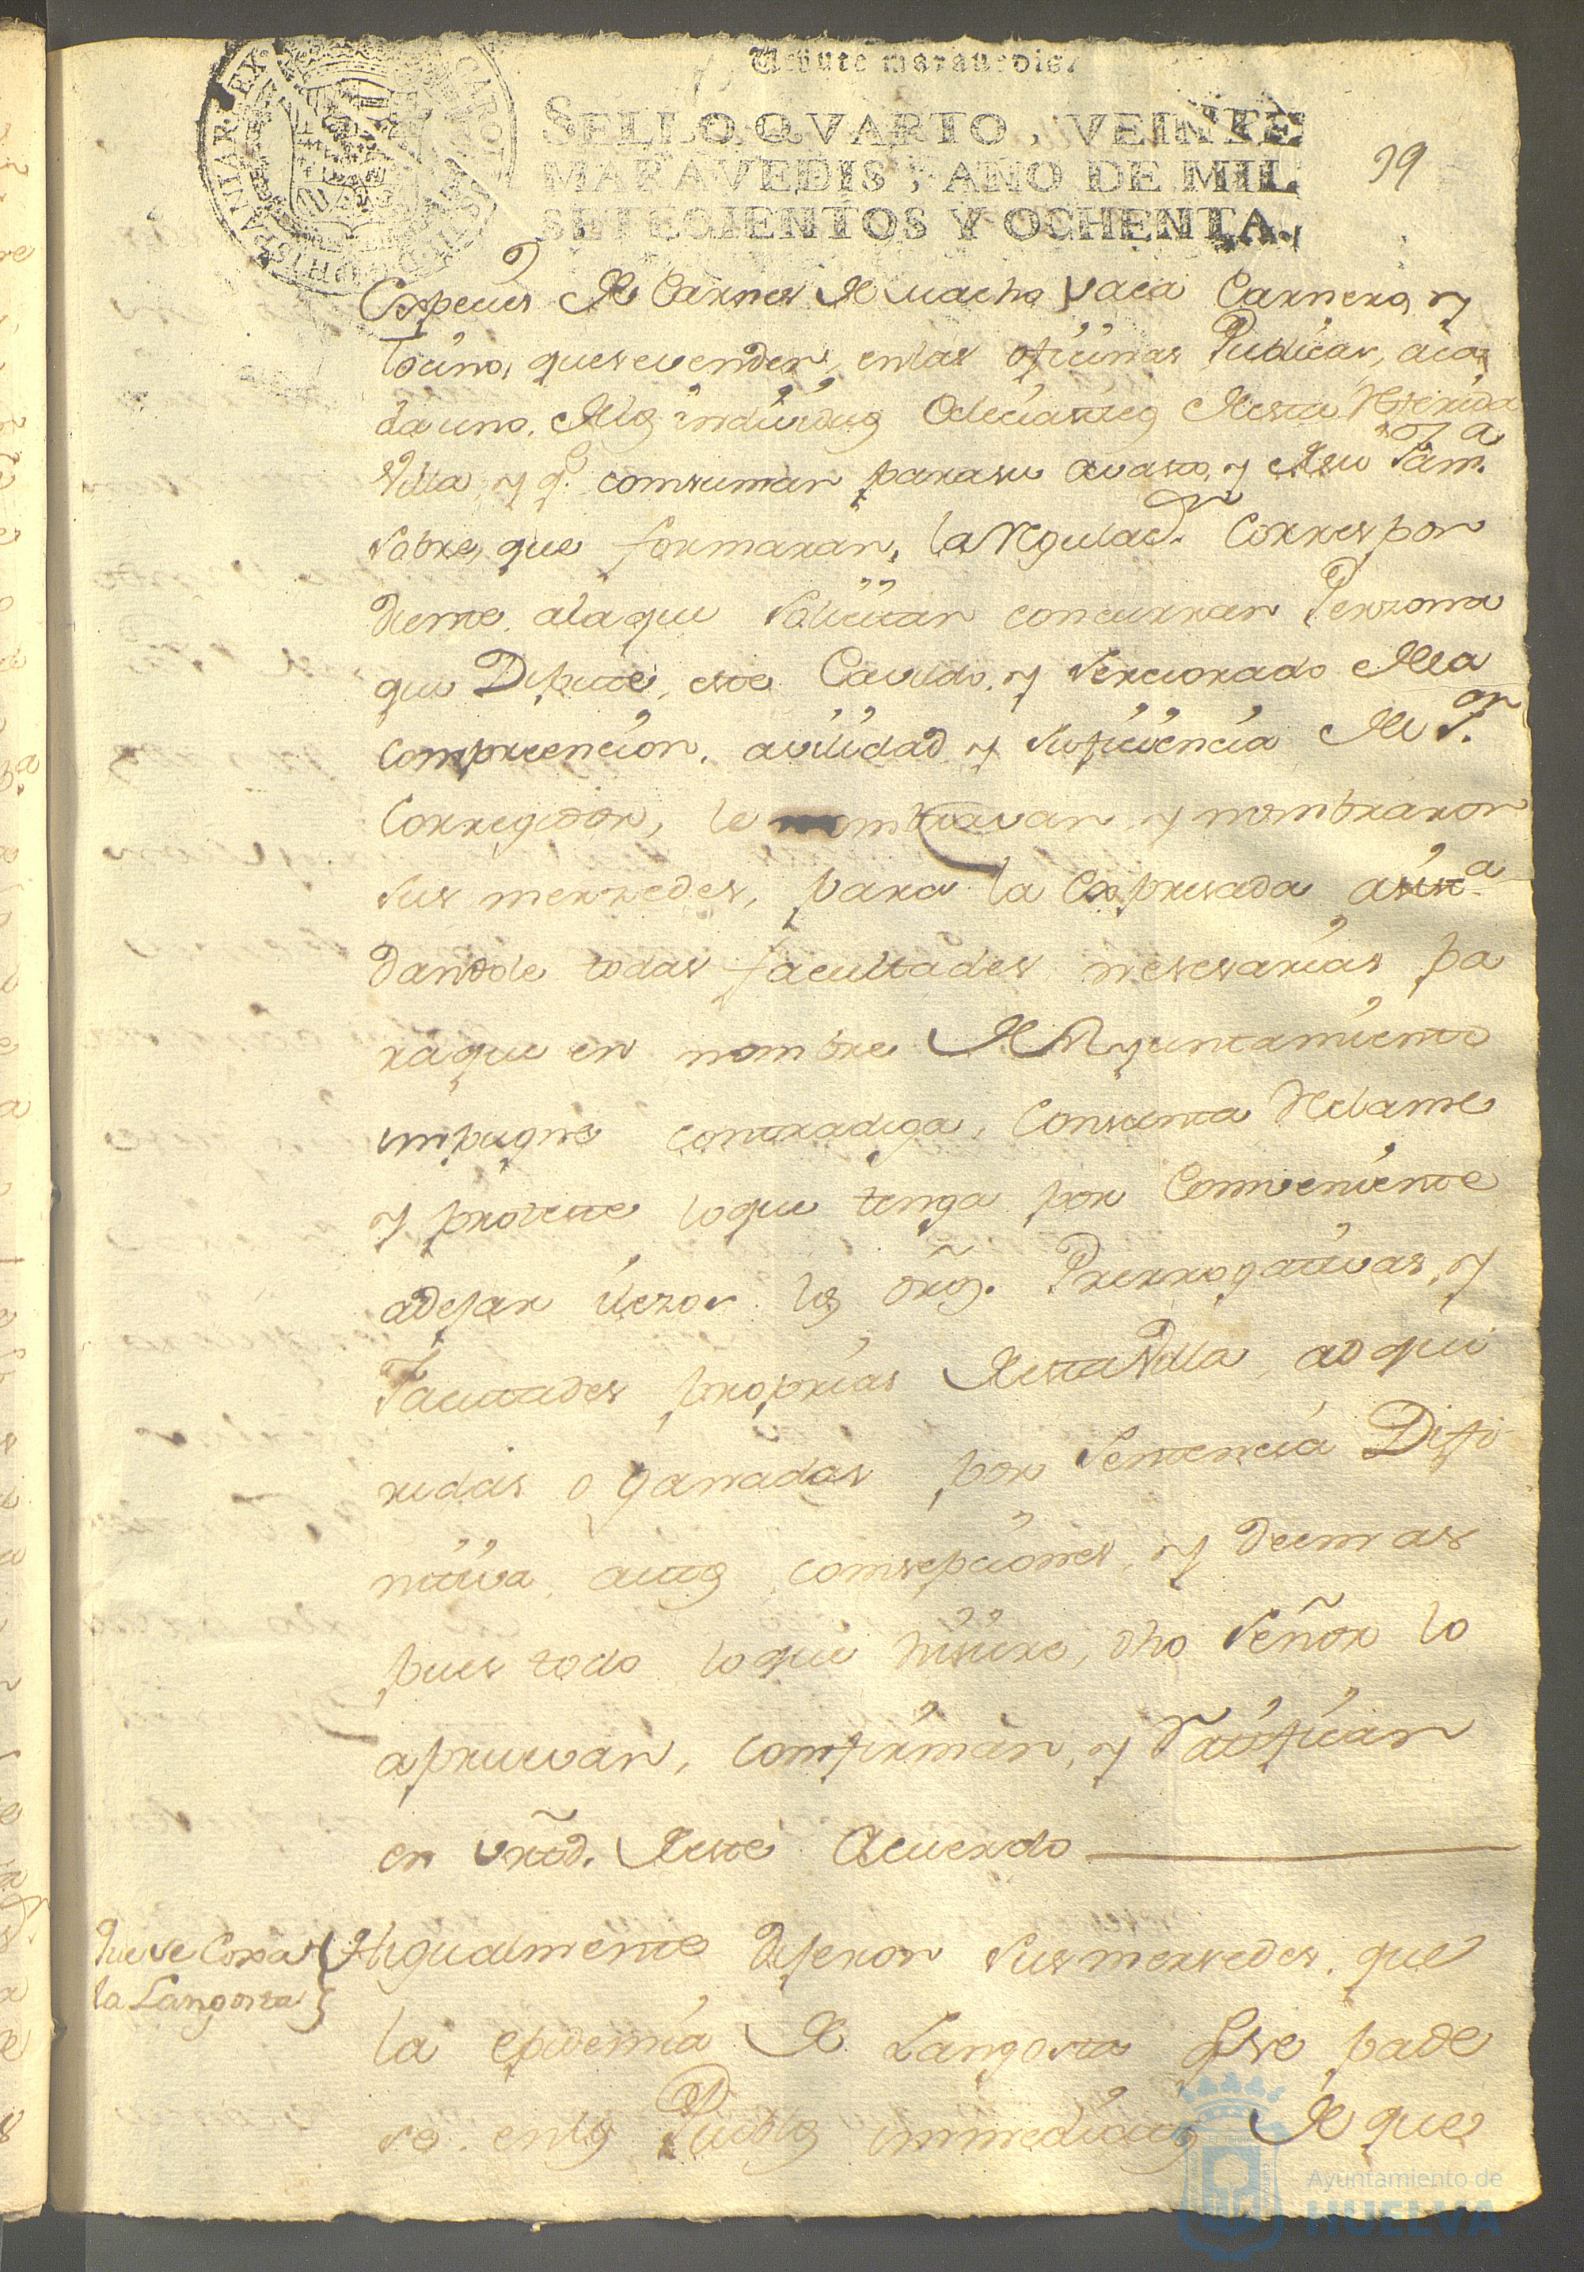 Veinte maravedis.
SELLO QVARTO, VEINTE
MARAVEDIS, AÑO DE MIL
SETECIENTOS Y OCHENTA.
39
Expecies de Carnes de macho vaca Carnero, y
tocino, quesevenden, enlas oficinas Publicas, aca
dauno, delos individuos Ecleciasticos desta Referida
Villa, y q.e comsuman parasu avasto, y desu Fam.a
sobre, que formaran, la Regulac.on Correspon
diente, alaque solicitan concurran Perzona
que Dipute, este Cavildo, y serciorado dela
comprecencion, avilidad, y suficiencia del S.or
Corregidor, le nombravan, y nombraron
sus merzedes, para la Expresada asist.a
dandole todas facultades, nesesarias pa
raque en nombre del Ayuntamiento
impugne contradiga, Consienta Reclame
y proteste loque tenga por Combeniente
adejar ilezos los dros. Prerrogativas, y
Facultades proprias destaVilla, adqui
ridas o ganadas por Sentencia Difi
nitiva, autos, comsepciones, y demas
pues todo loque hisiere, dho Señor lo
apruevan, comfirman, y Ratifican
en vrtd. deste Acuerdo
la Langosta
Higualmente dijeron sus mersedes, que
la epidemia de Langosta qe se pade
se, enlos Pueblos immediatos de que
Ayuntamiento de
HUELVA